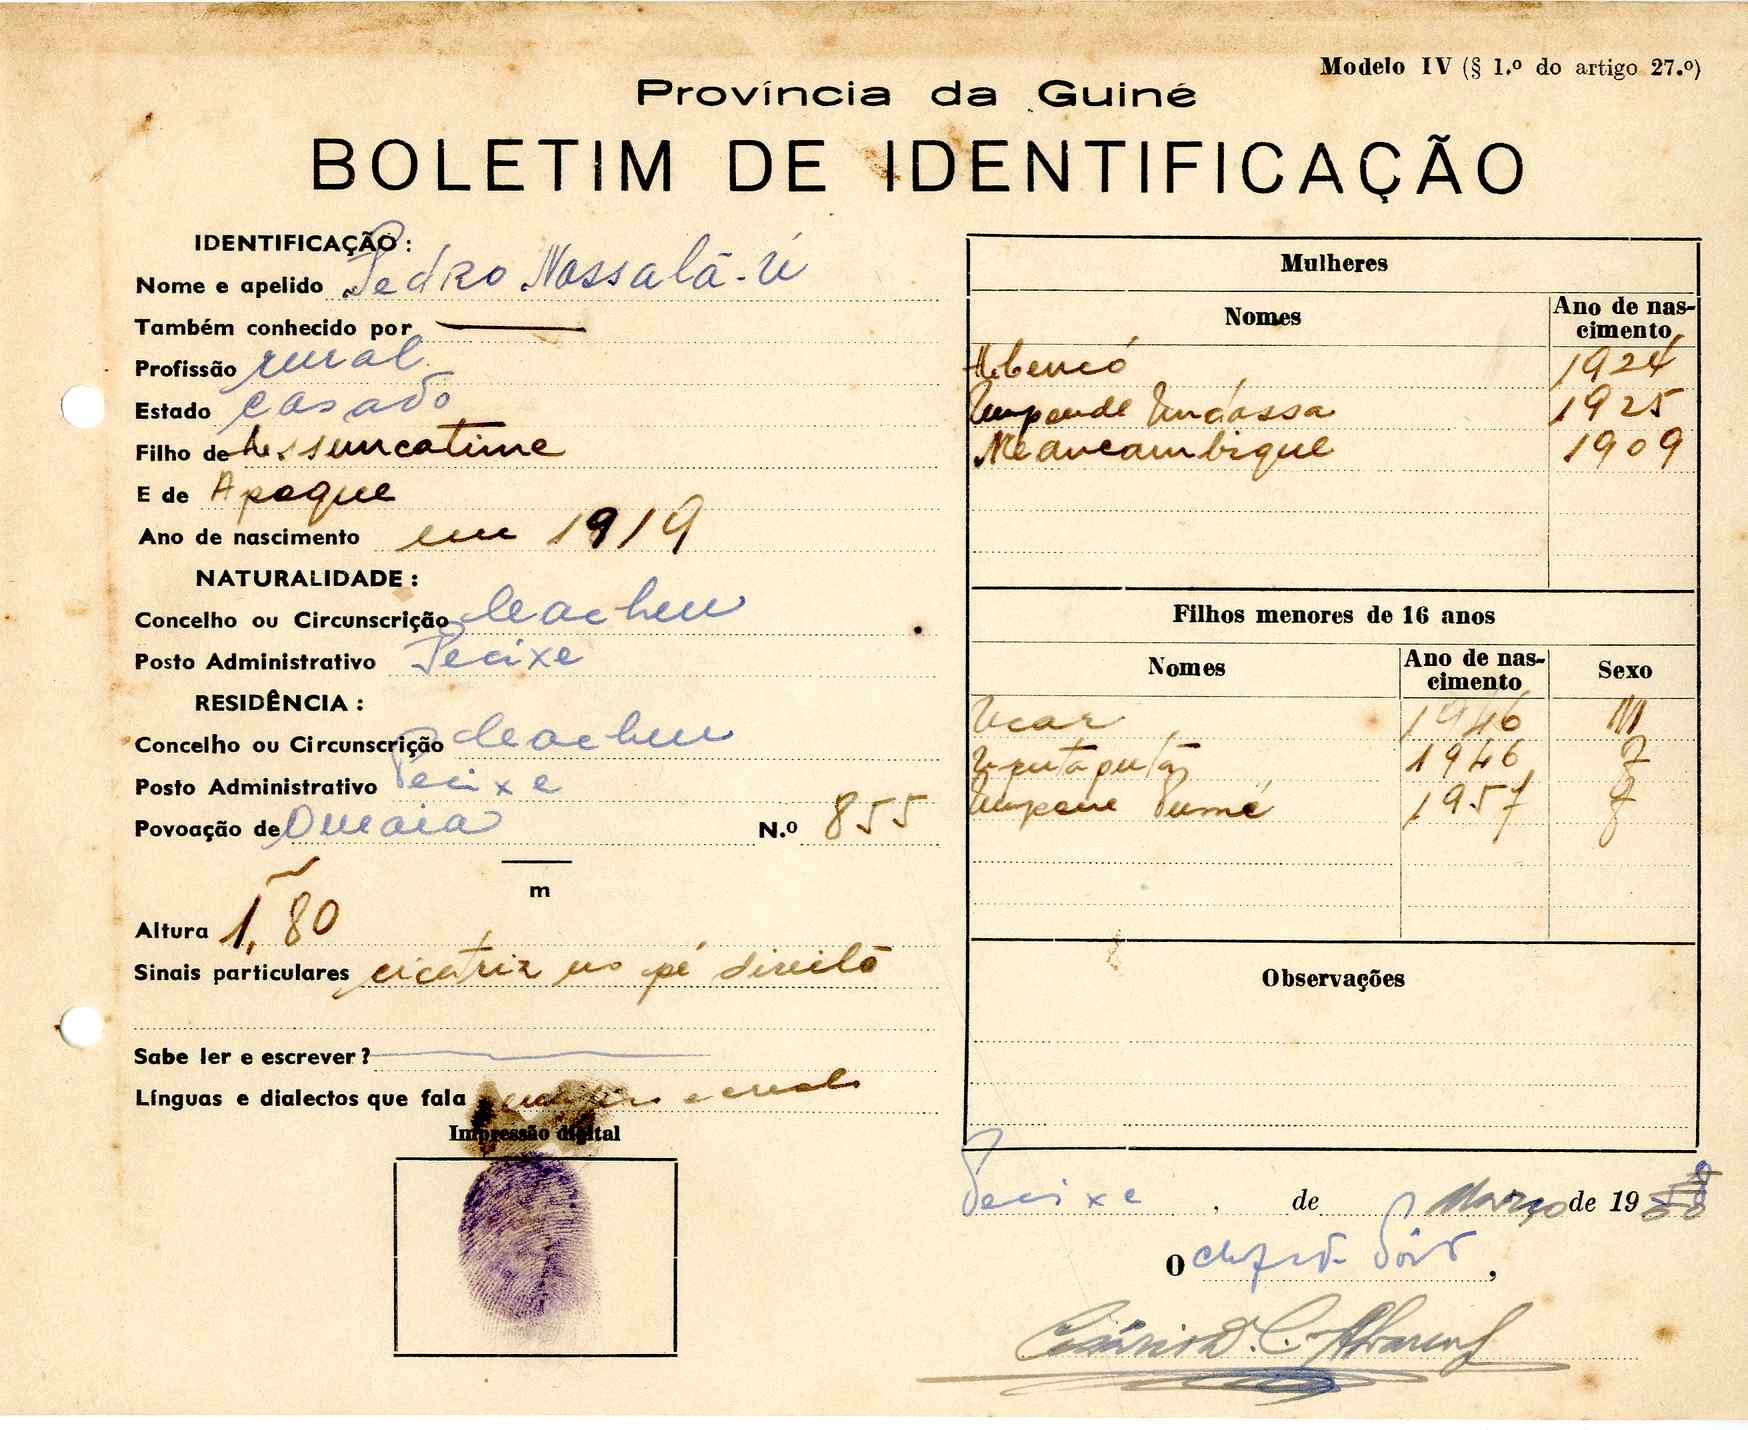 Modelo IV (§ 1.º do artigo 27.º)
Província da Guiné
BOLETIM DE IDENTIFICAÇÃO
IDENTIFICAÇÃO:
Nome e apelido Pedro Nassalã-ú
Também conhecido por
Profissão rural
Estado casado
Filho de
E de Apaque
Ano de nascimento em 1919
NATURALIDADE:
Concelho ou Circunscrição Cacheu
Posto Administrativo Pecixe
RESIDÊNCIA:
Concelho ou Circunscrição Cacheu
Posto Administrativo Pecixe
Povoação de N.º 855
m
Altura 1,80
Sinais particulares cicatriz no pé direito
Sabe ler e escrever?
Línguas e dialectos que fala e
Impressão digital
Mulheres
Nomes Ano de nascimento
1924
1925
1909
Filhos menores de 16 anos
Nomes Ano de nascimento Sexo
Ucar 1946 M
1946 F
1957 F
Observações
Pecixe, de Março de 19
O chefe de Pôsto,